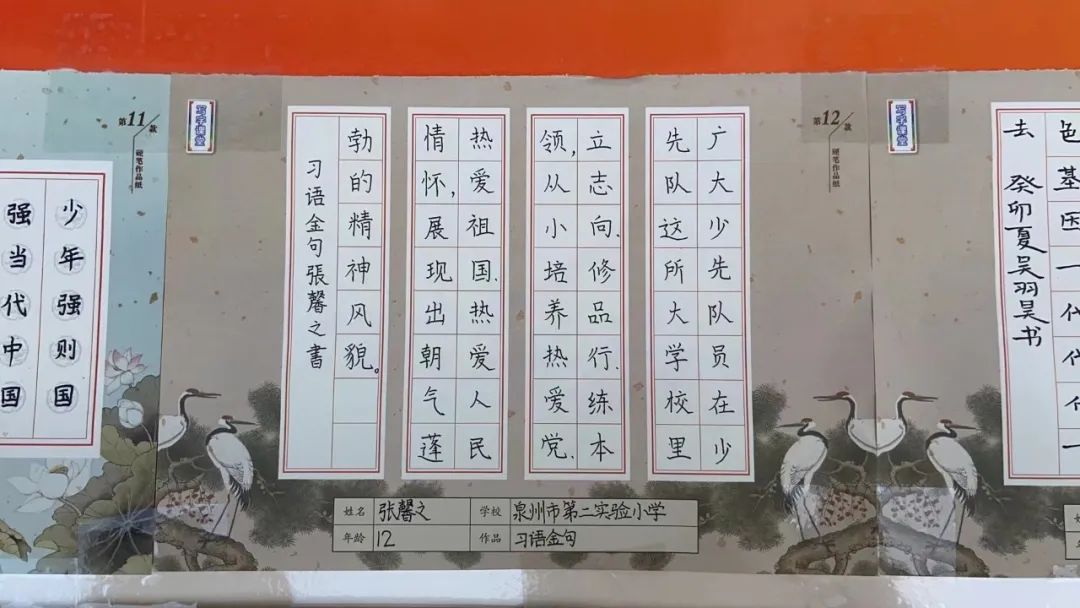 少年强则国
强当代中国
第11款
硬笔作品纸
写字课堂
广大少先队员在少
先队这所大学校里
立志向、修品行、练本
领,从小培养热爱党、
热爱祖国、热爱人民
情怀,展现出朝气蓬
勃的精神风貌。
习语金句張馨之書
姓名 张馨之 学校 泉州市第二实验小学
年龄 12 作品 习语金句
第12款
硬笔作品纸
写字课堂
色基因一代代
去 癸卯夏吴羽昊书